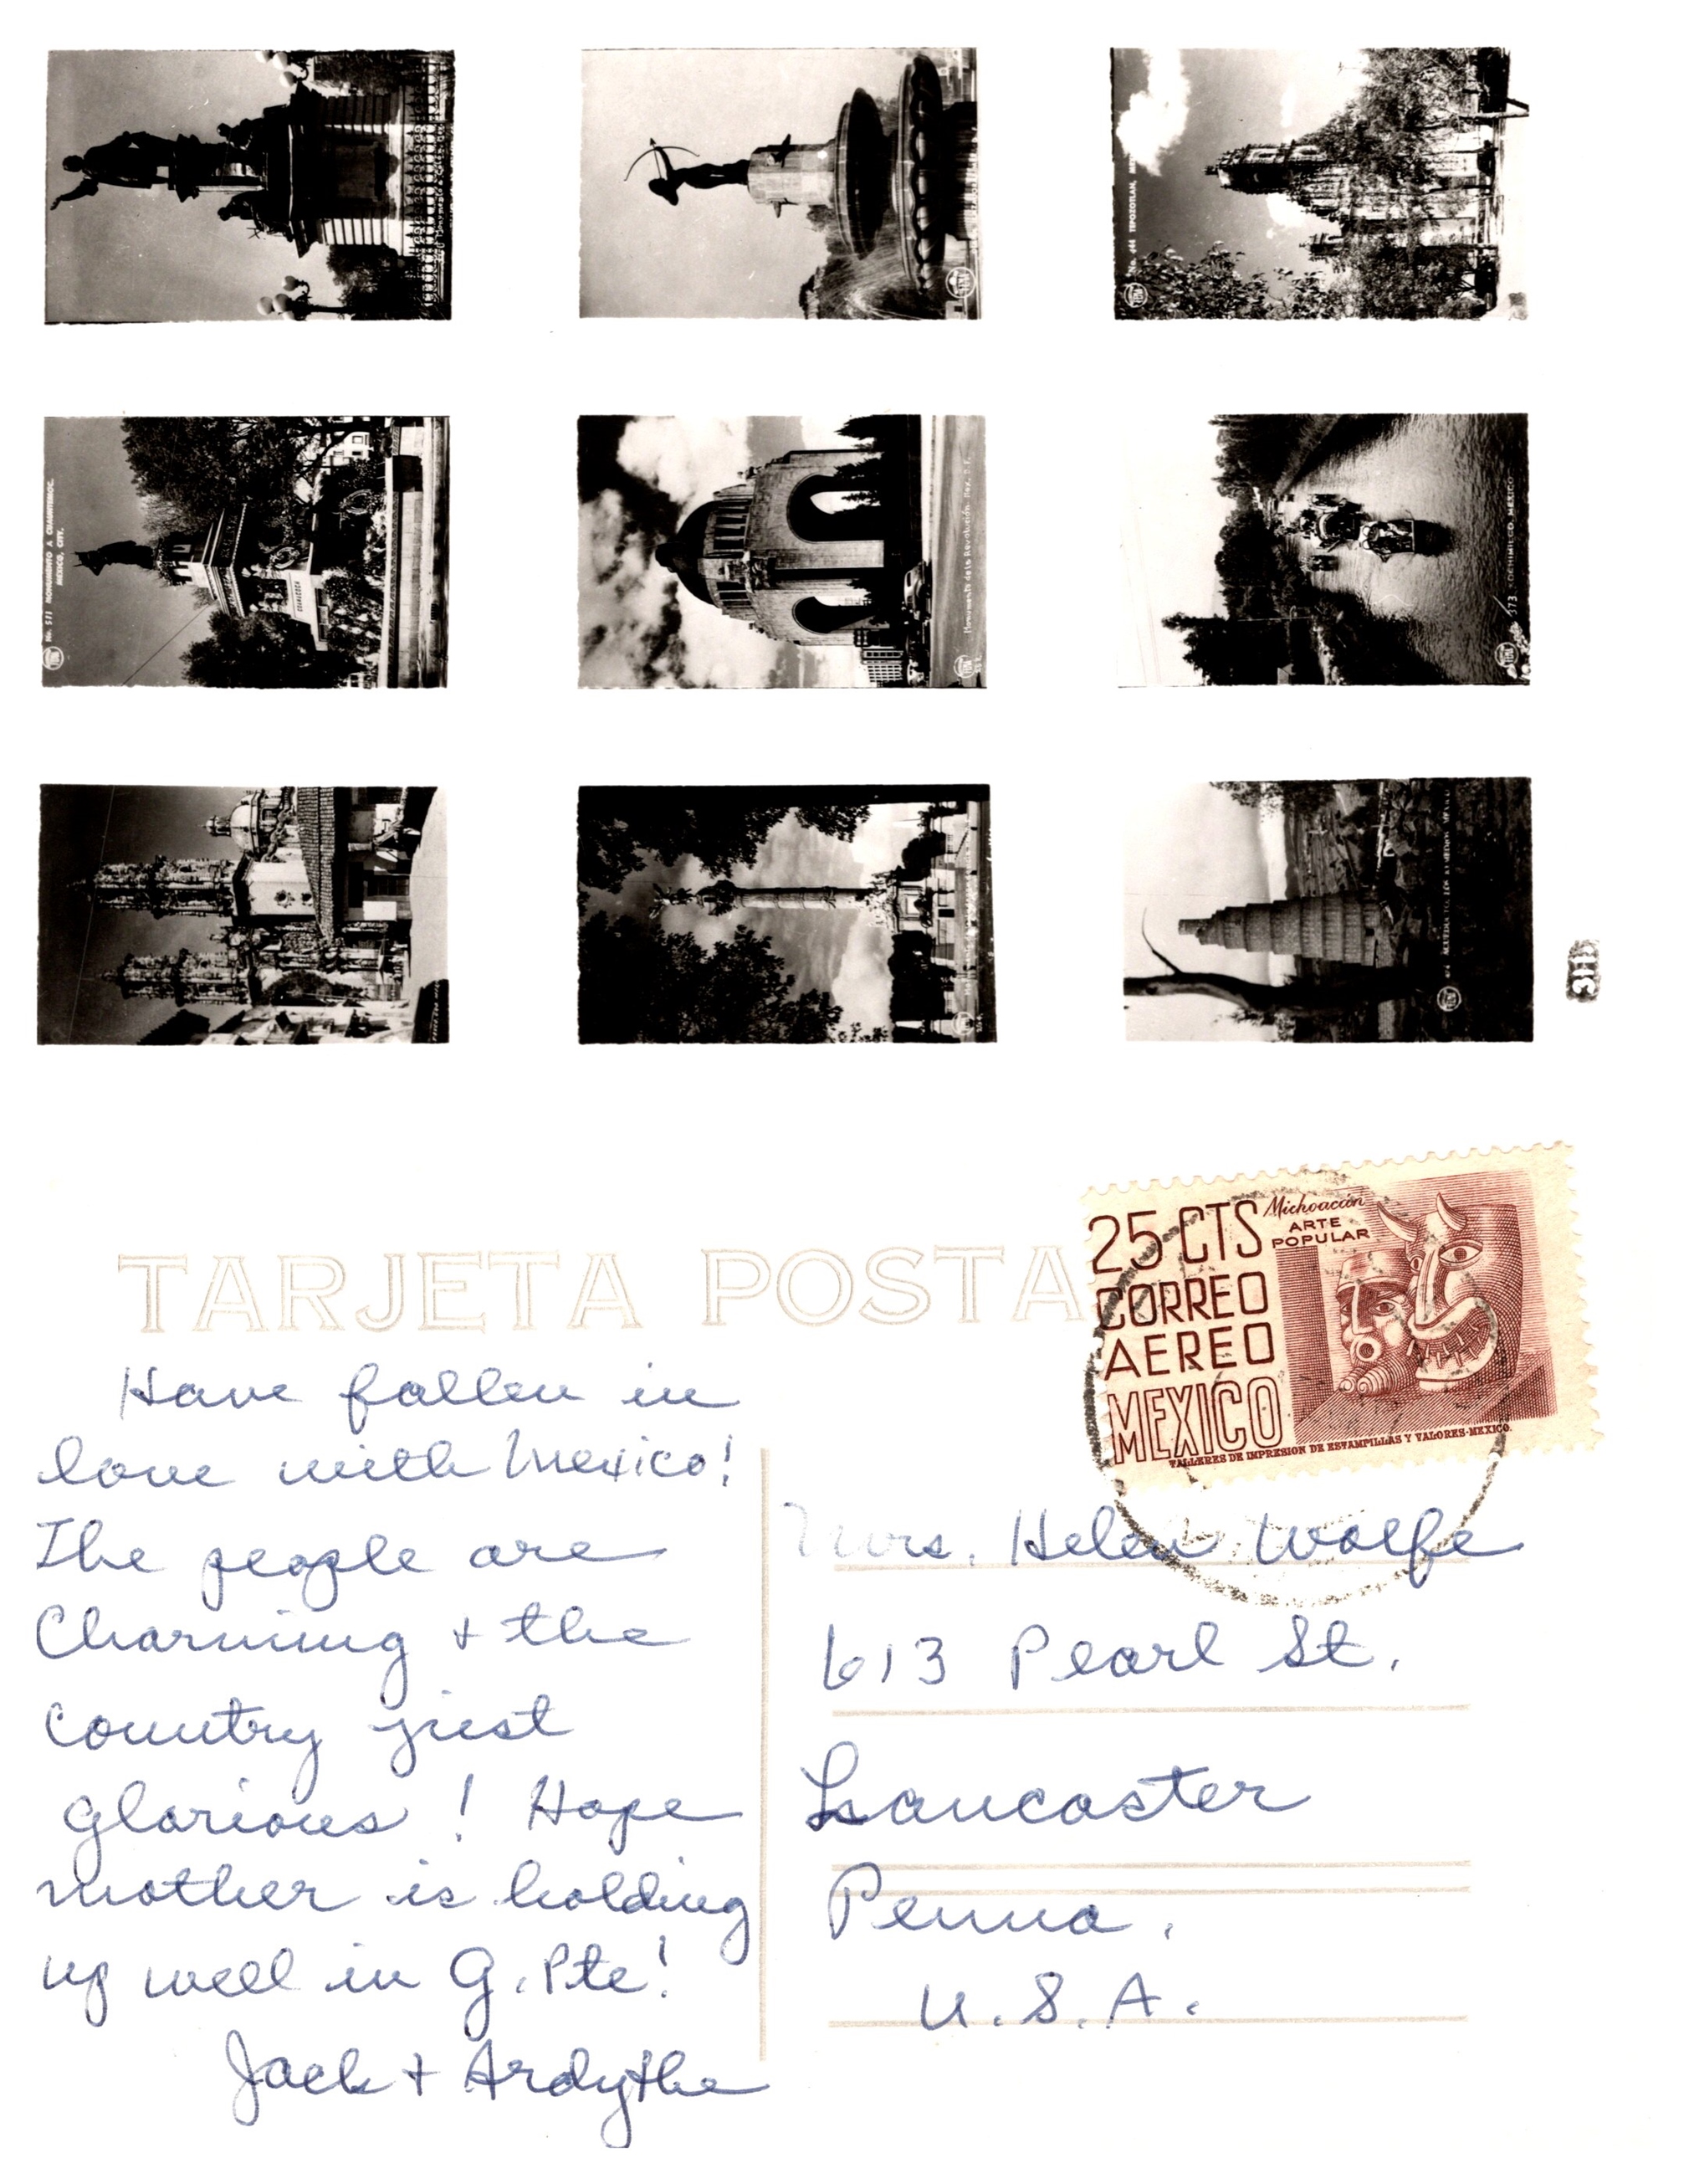 No. 511 MONUMENTO A CUAUHTEMOC.
MEXICO, CITY.
Monumento de la Revolución. Mex. D.F.
TEPOZOTLAN, MEX
373 XOCHIMILCO, MEXICO
311
TARJETA POSTA
25 CTS
CORREO
AEREO
MEXICO
Michoacán
ARTE
POPULAR
TALLERES DE IMPRESION DE ESTAMPILLAS Y VALORES-MEXICO.
Have fallen in
love with Mexico!
The people are
Charming + the
country just
glorious! Hope
mother is holding
up well in G. Pte!
Jack + Ardythe
Mrs. Helen Wolfe
613 Pearl St.
Lancaster
Penna.
U.S.A.